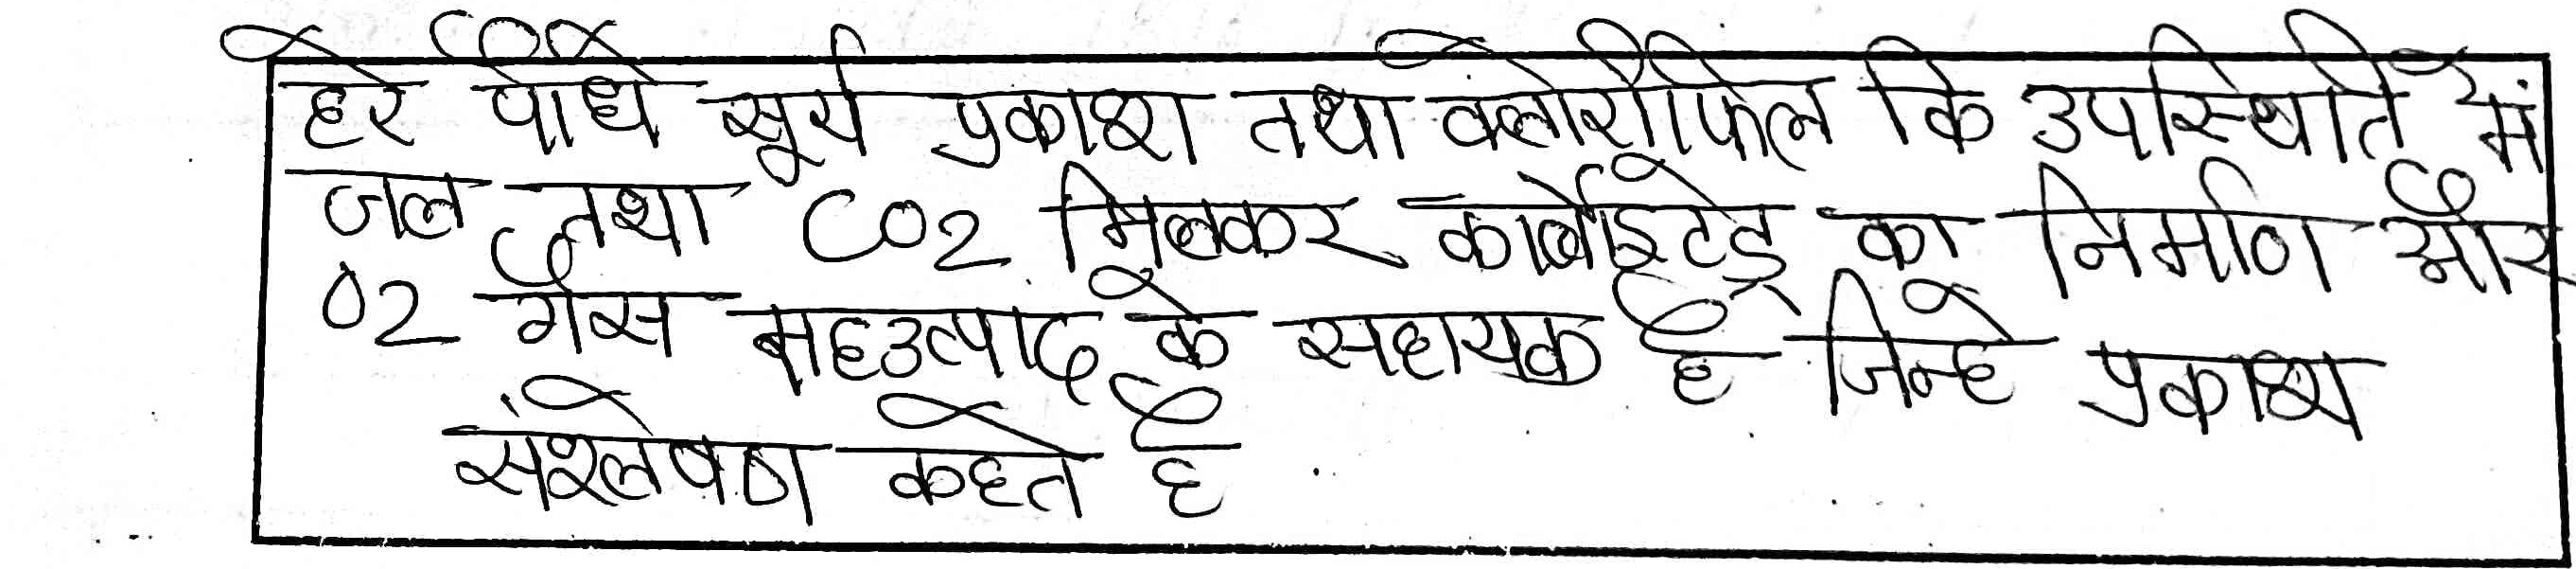 हरे पौधे सूर्य प्रकाश तथा क्लोरोफिल कि उपस्थिति में
जल तथा CO2 मिलकर कार्बोइटेड्र का निर्माण और
O2 गैस महउत्पाद के सहायक है जिन्हे प्रकाश
संश्लेषण कहते है